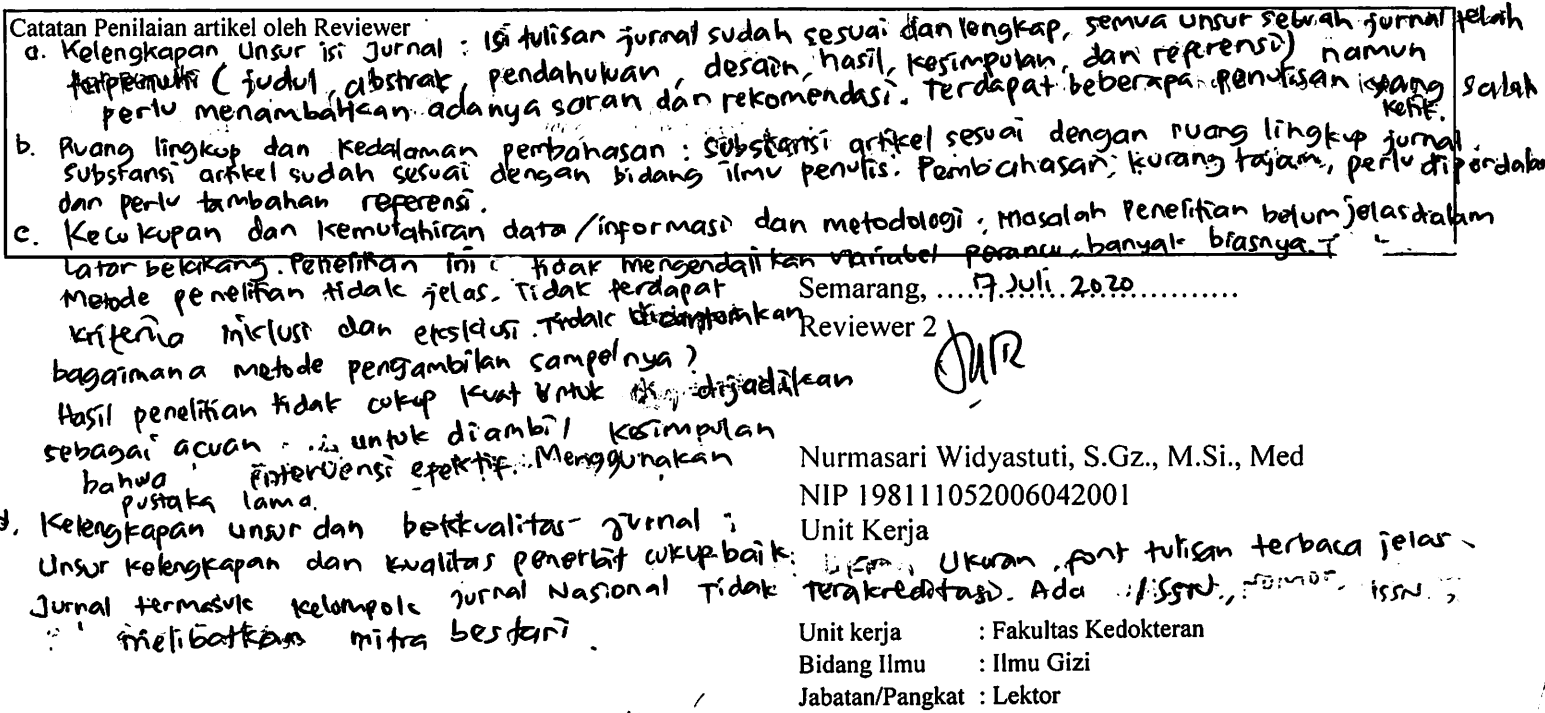 Catatan Penilaian artikel oleh Reviewer
a. Kelengkapan Unsur isi Jurnal : isi tulisan jurnal sudah sesuai dan lengkap, semua unsur sebuah jurnal telah
terpenuhi ( judul, abstrak, pendahuluan, desain, hasil, kesimpulan, dan referensi) namun
perlu menambahkan adanya saran dan rekomendasi. Terdapat beberapa penulisan yang salah
ketik.
b. Ruang lingkup dan Kedalaman pembahasan : Substansi artikel sesuai dengan ruang lingkup jurnal.
Substansi artikel sudah sesuai dengan bidang ilmu penulis. Pembahasan kurang tajam, perlu diperdalam
dan perlu tambahan referensi.
c. Kecukupan dan Kemutahiran data/informasi dan metodologi : Masalah Penelitian belum jelas dalam
Latar belakang. Penelitian ini tidak mengendalikan variabel perancu, banyak biasnya.
Metode penelitian tidak jelas. Tidak terdapat
kriteria inklusi dan eksklusi. Tidak dicantumkan
bagaimana metode pengambilan sampelnya ?
Hasil penelitian tidak cukup kuat untuk dijadikan
sebagai acuan untuk diambil kesimpulan
bahwa intervensi efektif. Menggunakan
pustaka lama.
d. Kelengkapan unsur dan kualitas jurnal :
Unsur kelengkapan dan kualitas penerbit cukup baik. Ukuran font tulisan terbaca jelas.
Jurnal termasuk kelompok jurnal Nasional Tidak Terakreditasi. Ada ISSN, nomor, ISSN,
melibatkan mitra bestari.
Semarang, .....17 Juli 2020.....................
Reviewer 2
Nurmasari Widyastuti, S.Gz., M.Si., Med
NIP 198111052006042001
Unit Kerja
Unit kerja : Fakultas Kedokteran
Bidang Ilmu : Ilmu Gizi
Jabatan/Pangkat : Lektor